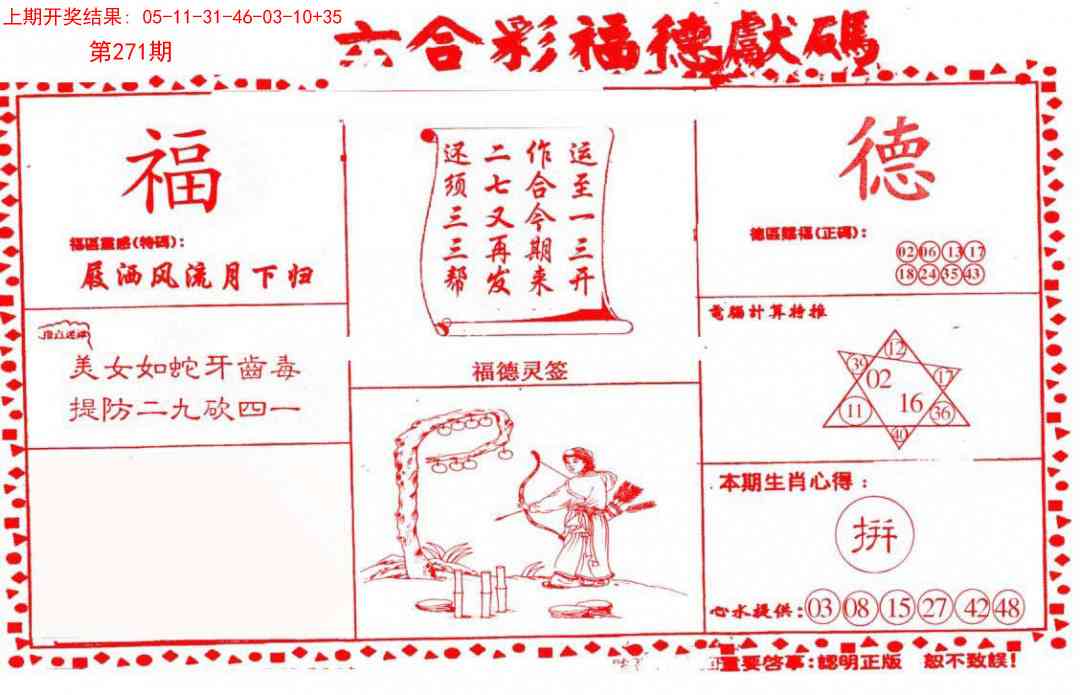 上期开奖结果: 05-11-31-46-03-10+35
第271期
六合彩福德獻碼
福
福區靈感(特碼):
屐洒风流月下归
美女如蛇牙齒毒
提防二九砍四一
运至一三开
作合今期来
二七又再发
还须三三帮
福德灵签
德
德區賜福(正碼):
02 06 13 17
18 24 35 43
電腦計算特推
12
39 02 17
11 16 36
40
本期生肖心得:
拼
心水提供: 03 08 15 27 42 48
重要啓事:認明正版 恕不致誤!